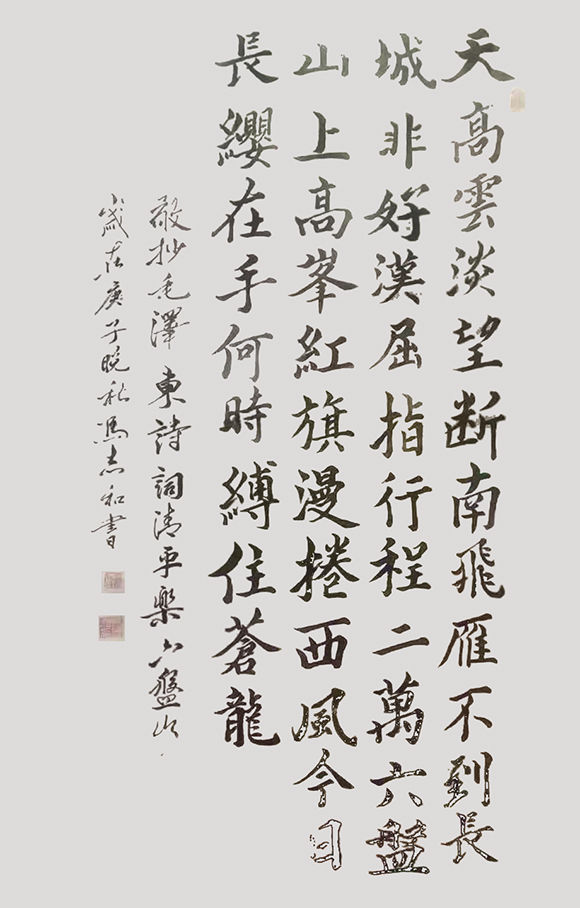 天高雲淡望断南飛雁不到長
城非好漢屈指行程二萬六盤
山上高峯紅旗漫捲西風今日
長纓在手何時縛住蒼龍
敬抄毛澤東詩詞清平樂六盤山
歲在庚子晚秋馮志和書